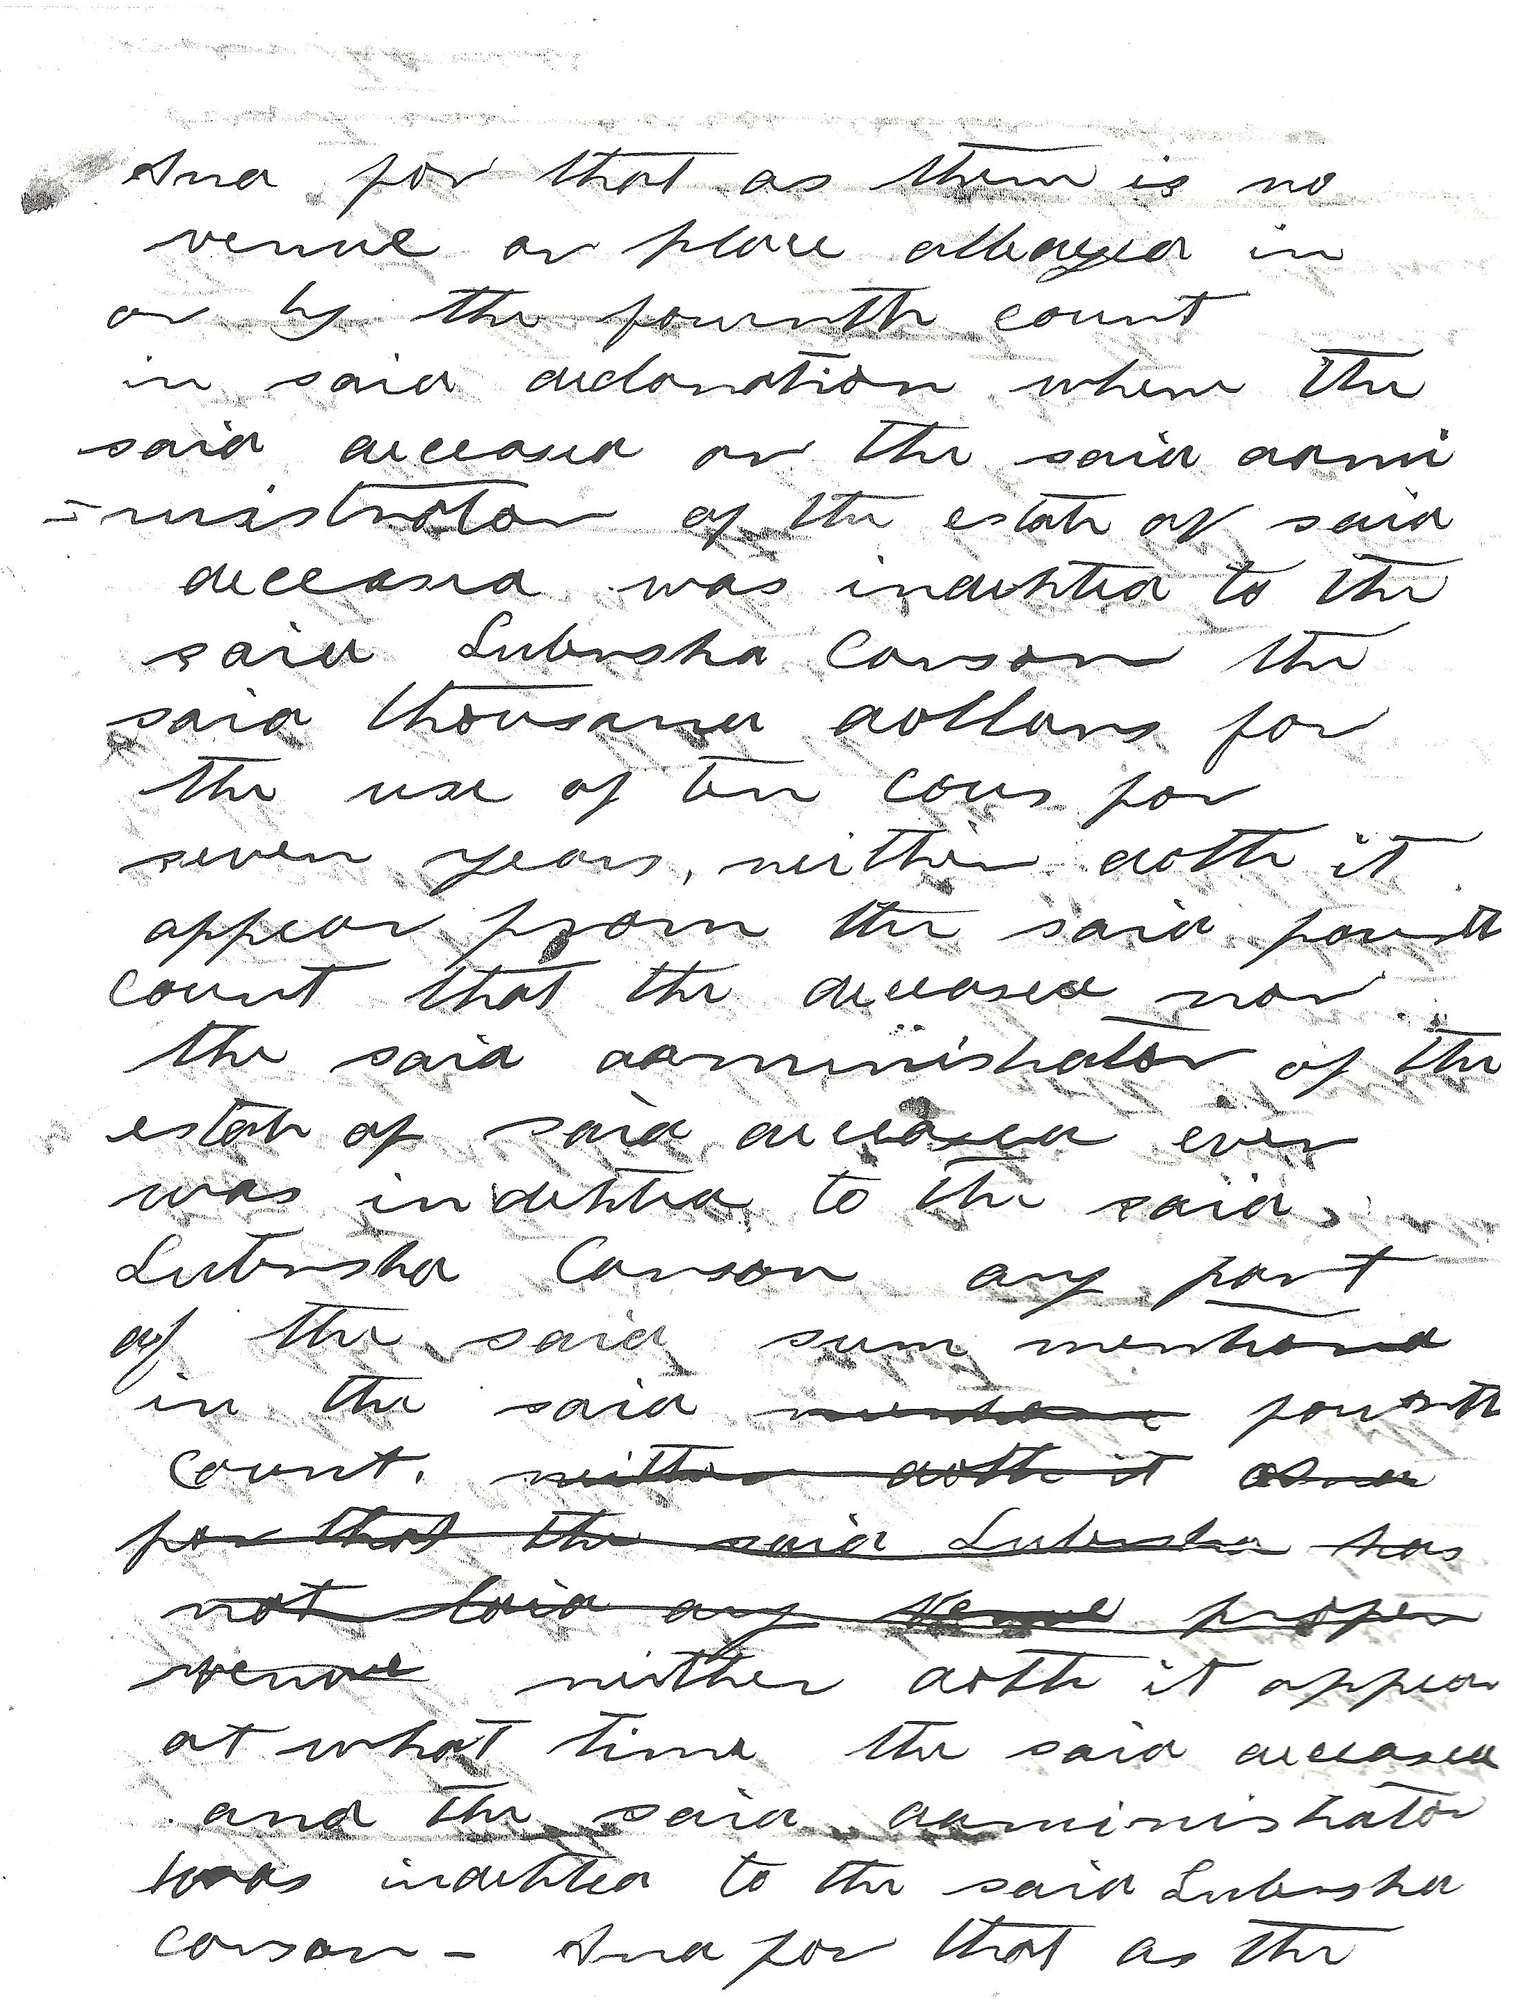 And for that as there is no
venue or place alleaged in
or by the fourth count
in said declaration where the
said deceased or the said admi
=nistrator of the estate of said
deceased was indebted to the
said Lubensha Carson the
said thousand dollars for
the use of ten cows for
seven years, neither doth it
appear from the said fourth
count that the deceased nor
the said administrator of the
estate of said deceased ever
was indebted to the said
Lubensha Carson any part
of the said sum mentioned
in the said fourth
count. neither doth it
for that the said Lubensha has
not laid any venue proper
venue neither doth it appear
at what time the said deceased
and the said administrator
was indebted to the said Lubensha
Carson - And for that as the